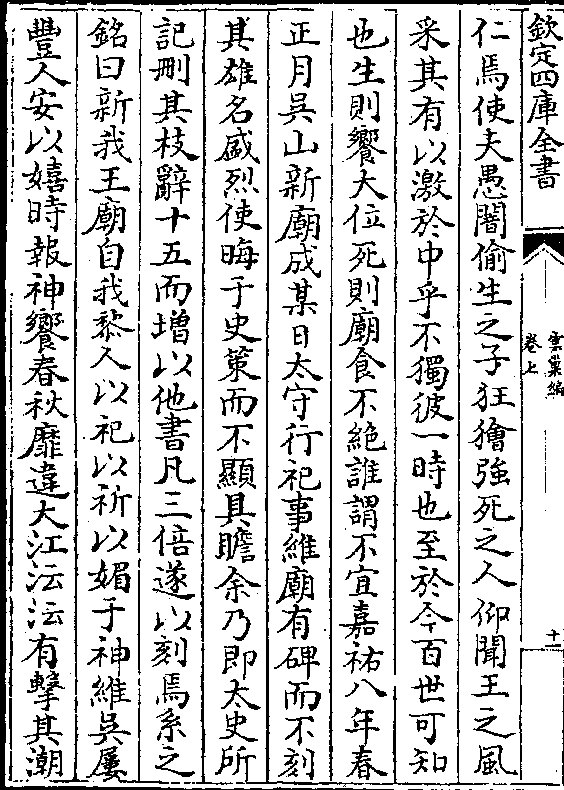 欽定四庫全書
雲巢編
卷七
十一
仁焉使夫愚闇偷生之子狂獪強死之人仰聞王之風
采其有以激於中乎不獨彼一時也至於今百世可知
也生則饗大位死則廟食不絕誰謂不宜嘉祐八年春
正月吳山新廟成某日太守行祀事維廟有碑而不刻
其雄名盛烈使晦于史策而不顯具瞻余乃即太史所
記刪其枝辭十五而增以他書凡三倍遂以刻焉系之
銘曰新我王廟自我黎人以祀以祈以媚于神維吳屢
豐人安以嬉時報神饗春秋靡違大江沄沄有擊其潮